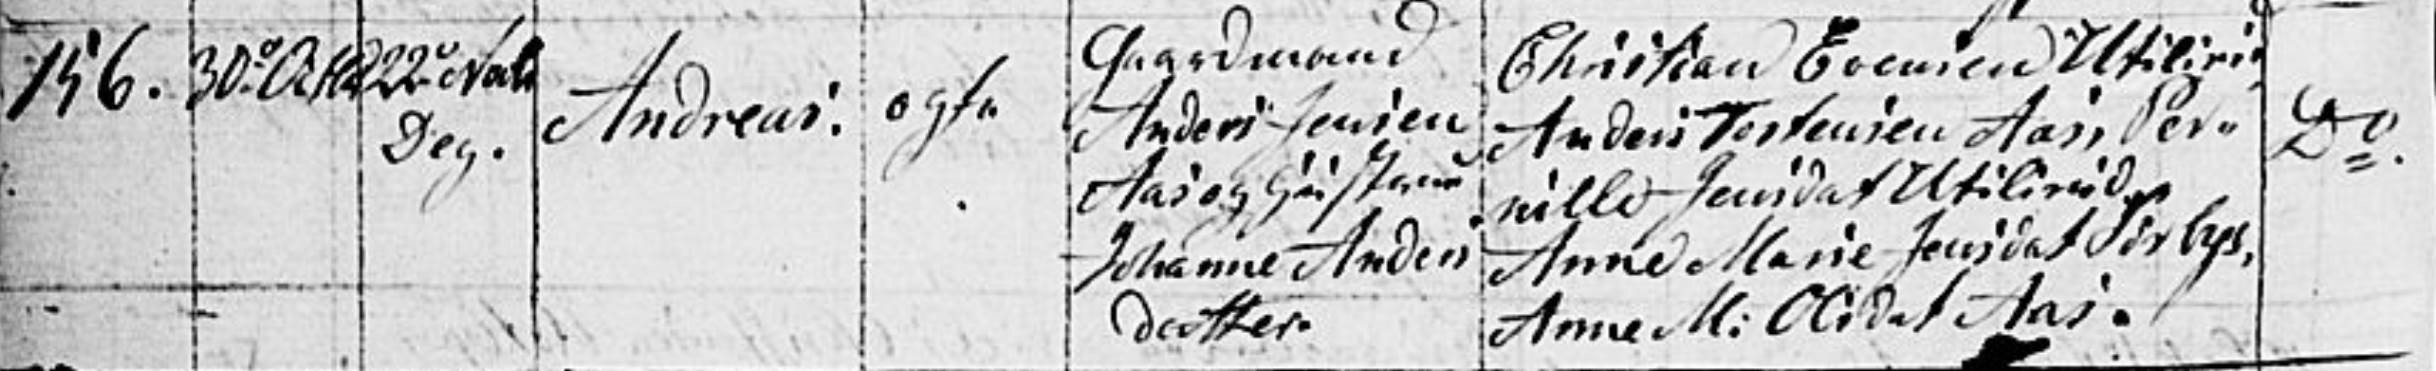 156. 30.º Octb. 22.º Novb.
Deg.
Andreas.
ægte
Gaardmand
Anders Jensen
Aas og Hustrue
Johanne Anders
datter.
Christian Evensen Utiliris,
Anders Torstensen Aas, Per-
nille Jensdat Utilirud,
Anne Marie Jensdat Sörbye,
Anne M: Olsdat Aas.
Dº.